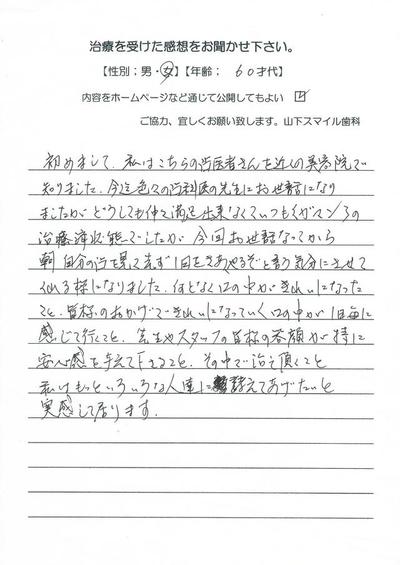 治療を受けた感想をお聞かせ下さい。
【性別；男・女】【年齢； 60才代】
内容をホームページなど通じて公開してもよい ☑
ご協力、宜しくお願い致します。山下スマイル歯科
初めまして、私はこちらの歯医者さんを近くの美容院で
知りました。今迄色々の歯科医の先生にお世話になり
ましたがどうしても仲々満足出来なくていつもガマンの
治療状態でしたが今回お世話なってから
朝自分の歯を見て先ず1日をさあやるぞと言う気分にさせて
くれる様になりました。何となく口の中がきれいになった
こと、皆様のおかげできれいになっていく口の中が1日毎に
感じて行くこと、先生やスタッフの皆様の笑顔が特に
安心感を与えて下さること、その中で治て頂くこと
私はもっといろいろな人達に教えてあげたいと
実感して居ります。